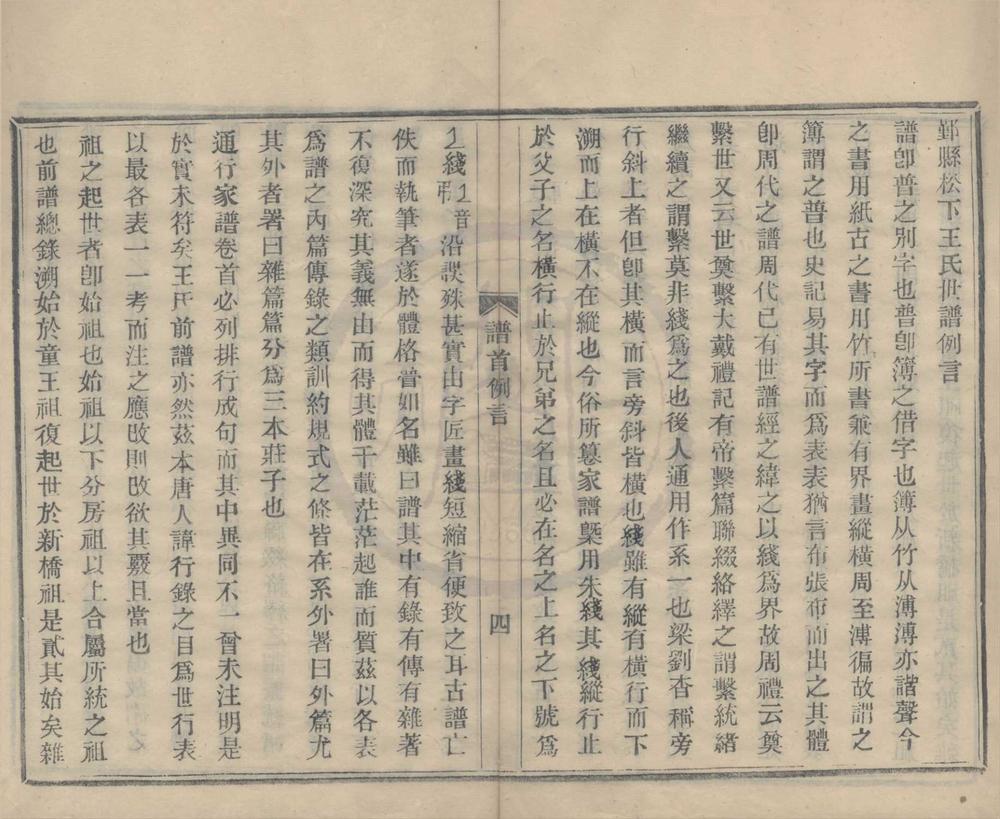 鄞縣松下王氏世譜例言
譜卽普之別字也普卽簿之借字也簿从竹从溥溥亦諧聲今
之書用紙古之書用竹所書兼有界畫縱橫周至溥徧故謂之
簿謂之普也史記易其字而爲表表猶言布張布而出之其體
卽周代之譜周代已有世譜經之緯之以綫爲界故周禮云奠
繫世又云世奠繫大戴禮記有帝繫篇聯綴絡繹之謂繫統緒
繼續之謂繫莫非綫爲之也後人通用作系一也梁劉杳稱旁
行斜上者但卽其橫而言旁斜皆橫也綫雖有縱有橫行而下
溯而上在橫不在縱也今俗所篹家譜槩用朱綫其綫縱行止
於父子之名橫行止於兄弟之名且必在名之上名之下號爲
譜首例言
四
綫
音
沿誤殊甚實由字匠畫綫短縮省便致之耳古譜亡
佚而執筆者遂於體格昝如名雖曰譜其中有錄有傳有雜著
不復深究其義無由而得其體千載茫茫起誰而質茲以各表
爲譜之內篇傳錄之類訓約規式之條皆在系外署曰外篇尤
其外者署曰雜篇篇分爲三本莊子也
通行家譜卷首必列排行成句而其中異同不一曾未注明是
於實未符矣王氏前譜亦然茲本唐人諱行錄之目爲世行表
以最各表一一考而注之應改則改欲其覈且當也
祖之起世者卽始祖也始祖以下分房祖以上合屬所統之祖
也前譜總錄溯始於童王祖復起世於新橋祖是貳其始矣雜